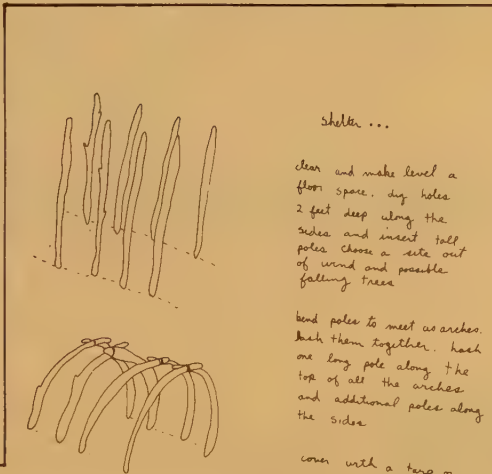 shelter ...
clear and make level a
floor space. dig holes
2 feet deep along the
sides and insert tall
poles choose a site out
of wind and possible
falling trees
bend poles to meet as arches.
lash them together. lash
one long pole along the
top of all the arches
and additional poles along
the sides
cover with a tarp